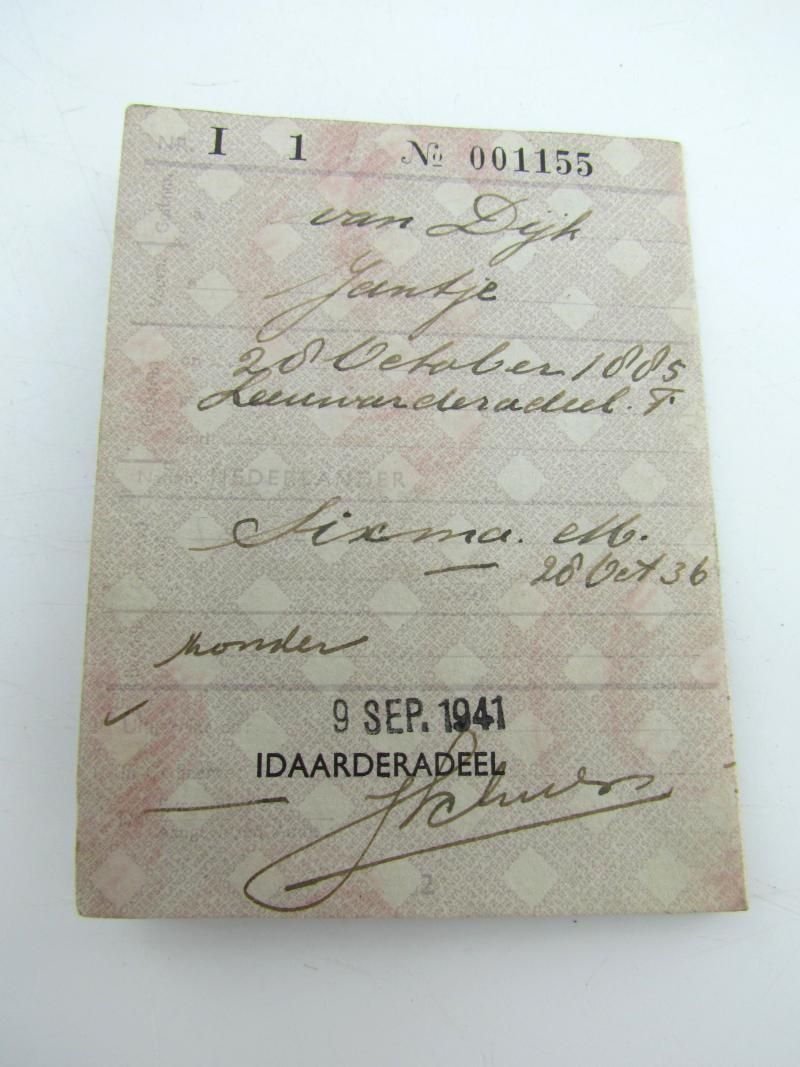 NR. I 1 № 001155
van Dijk
Jantje
28 October 1885
Leeuwarderadeel. F.
NEDERLANDER
Sixma. M.
28 Oct 36
zonder
9 SEP. 1941
IDAARDERADEEL
2